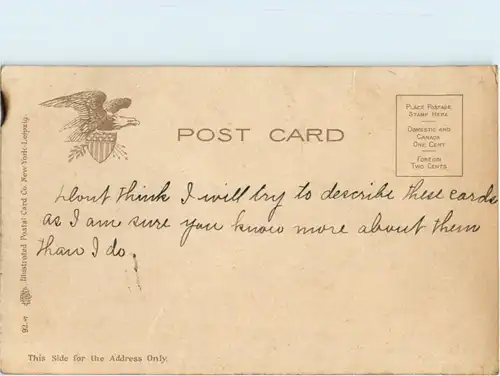 POST CARD
PLACE POSTAGE
STAMP HERE
DOMESTIC AND
CANADA
ONE CENT
FOREIGN
TWO CENTS
Illustrated Postal Card Co. New York-Leipzig.
dont think I will try to describe these cards
as I am sure you know more about them
than I do.
This Side for the Address Only.